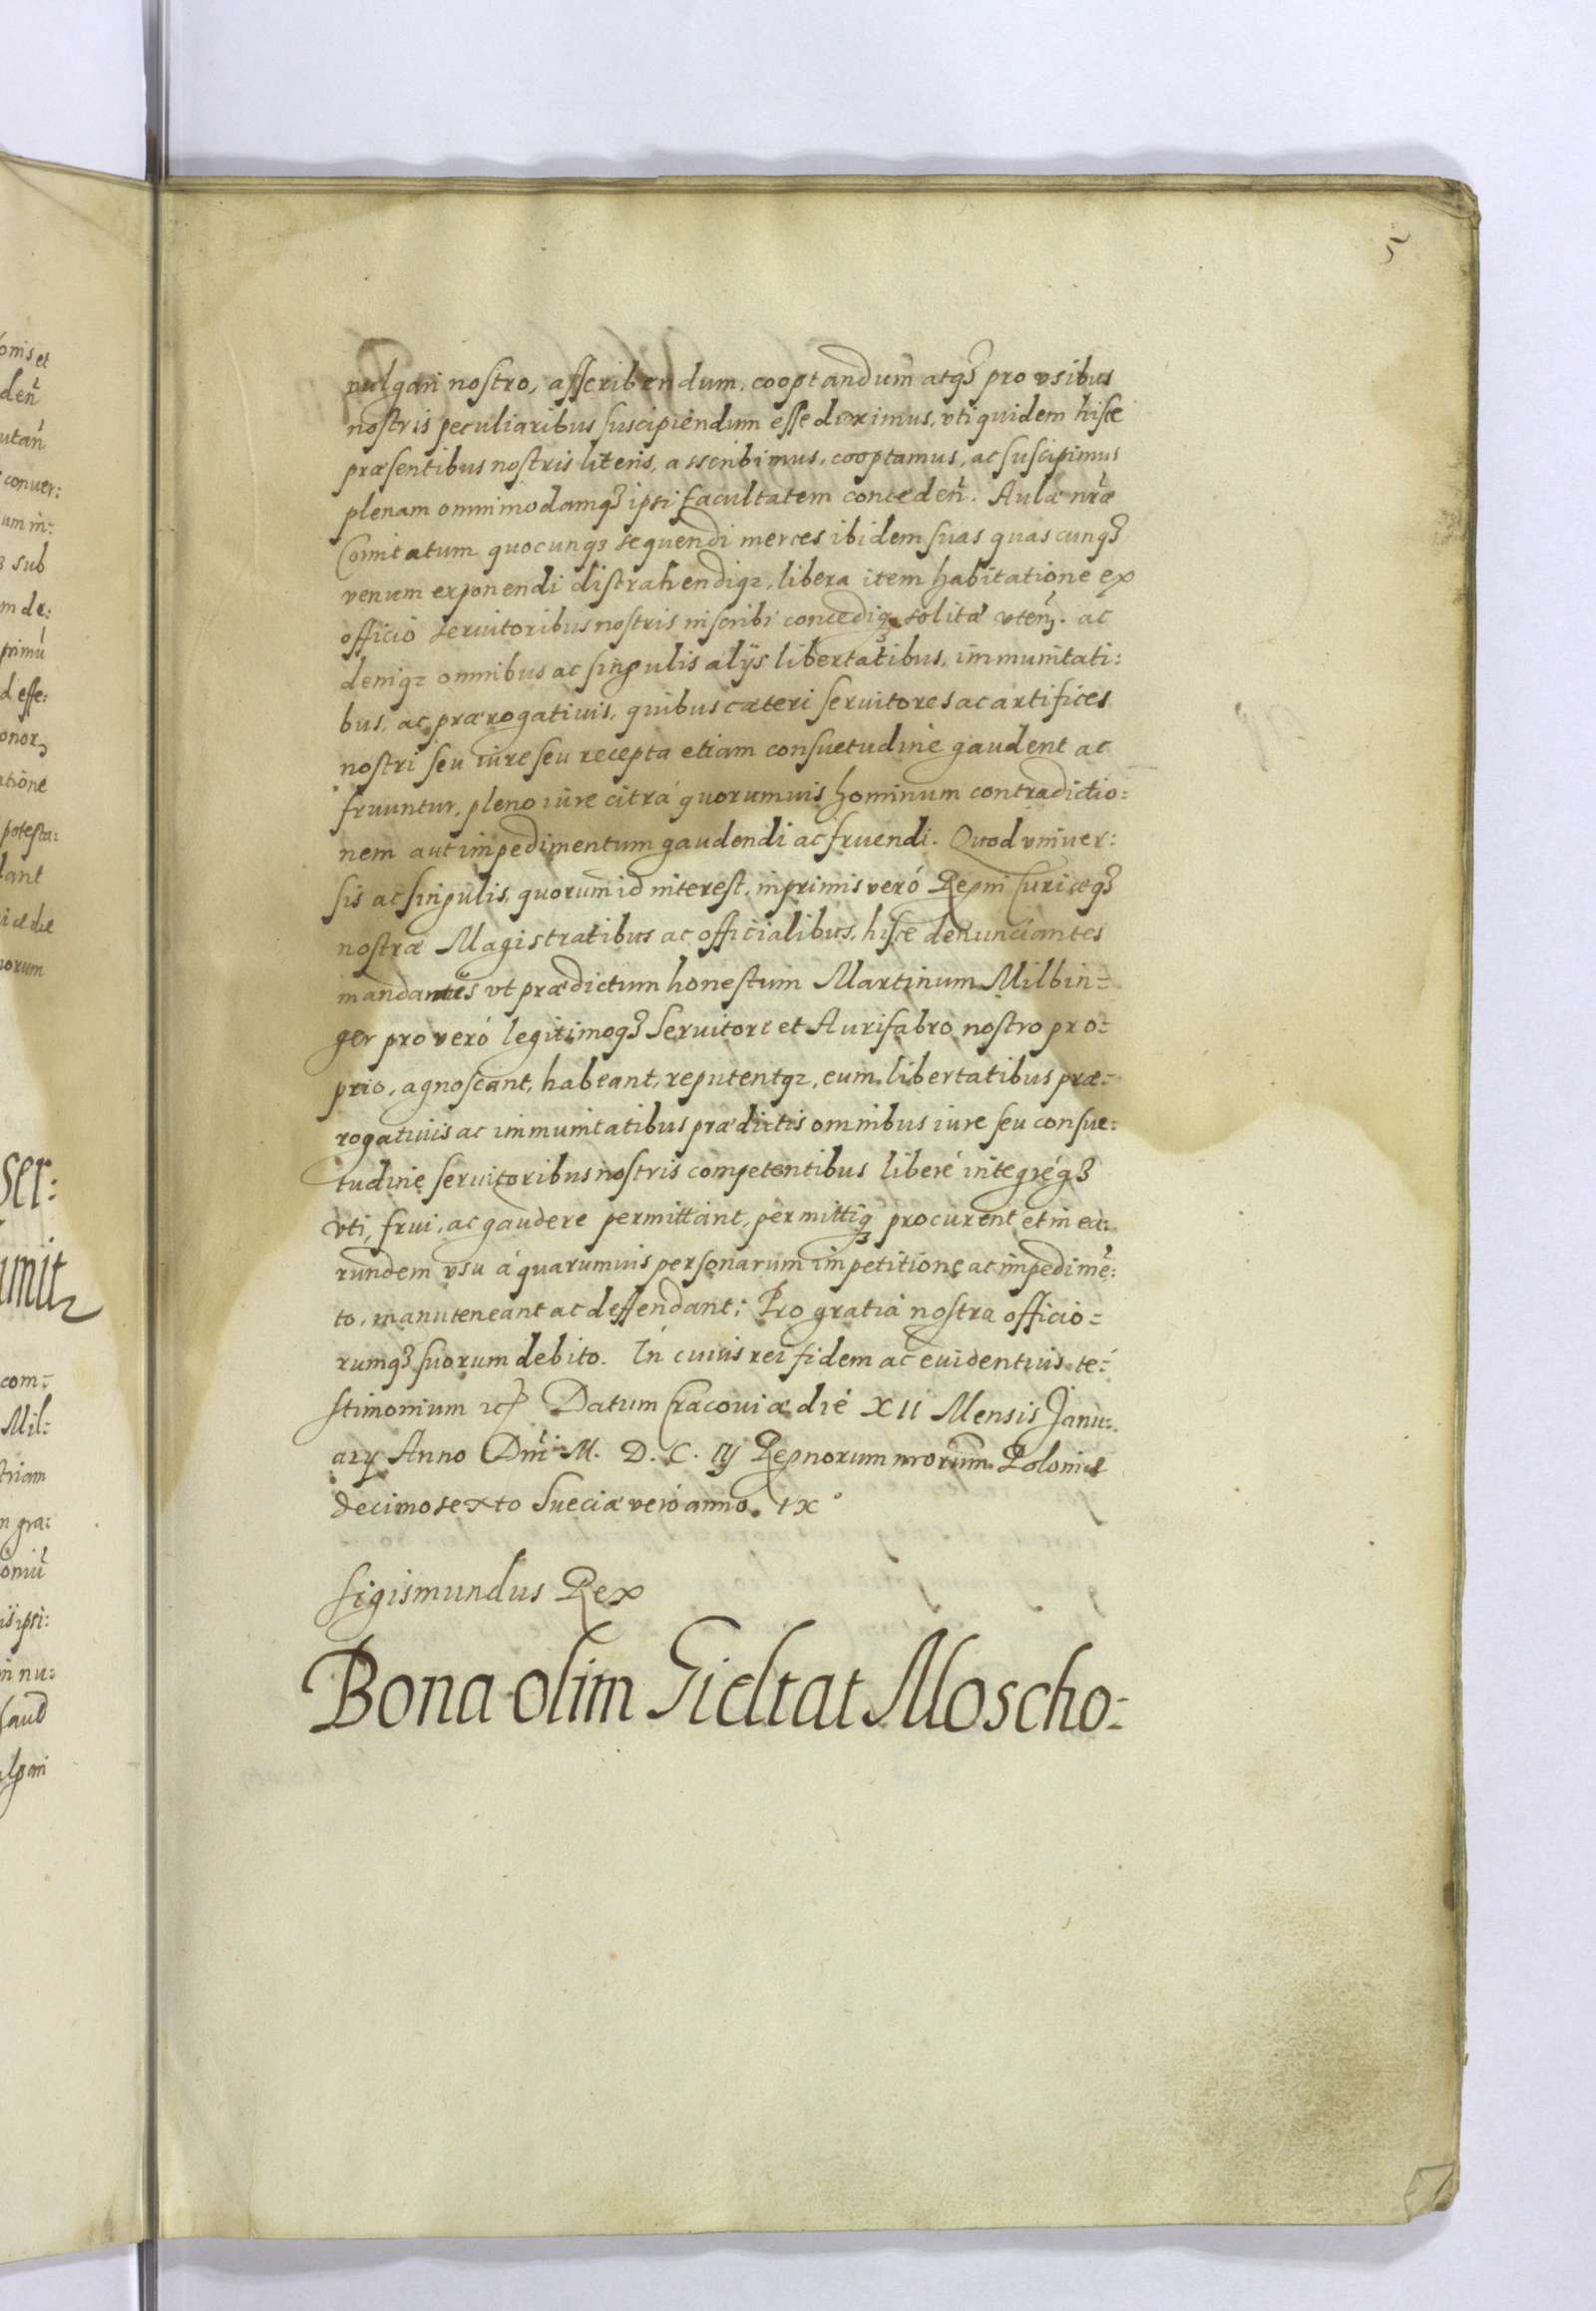 5
vulgari nostro, asscribendum, cooptandum atq3 pro vsibus
nostris peculiaribus suscipiendum esse duximus, vti quidem hisce
præsentibus nostris literis, asscribimus, cooptamus, ac suscipimus
plenam omnimodamq3 ipsi facultatem conceden̄. Aulæ nr̄æ
Comitatum quocunq3 sequendi merces ibidem suas quascunq3
venum exponendi distrahendiq3, libera item habitatione ex
officio seruitoribus nostris inscribi concediq3 solitæ vten̄. ac
deniq3 omnibus ac singulis alijs libertatibus, immunitati:
bus, ac prærogatiuis, quibus cæteri seruitores ac artifices
nostri seu iure seu recepta etiam consuetudine gaudent ac
fruuntur, pleno iure citrà quorumuis hominum contradictio=
nem aut impedimentum gaudendi ac fruendi. Quod vniuer:
sis ac singulis, quorum id interest, inprimis veró Regni Curiæq3
nostræ Magistratibus ac officialibus, hisce denunciantes
mandantes vt prædictum honestum Martinum Milbin=
ger pro veró legitimoq3 Seruitore et Aurifabro nostro pro=
prio, agnoscant, habeant, reputentq3, eum libertatibus præ=
rogatiuis ac immunitatibus prædictis omnibus iure seu consue:
tudine seruitoribus nostris competentibus liberé integréq3
vti, frui, ac gaudere permittant, permittiq3 procurent et in ea:
rundem vsu á quarumuis personarum impetitione ac impedimē:
to, manuteneant ac deffendant; Pro gratia nostra officio=
rumq3 suorum debito. In cuius rei fidem ac euidentius te=
stimonium etc Datum Cracouiæ die XII Mensis Janu:
arij Anno Dn̄i M. D. C. IIIJ Regnorum nr̄orum Poloniæ
decimosexto Sueciæ veró anno. IX°
Sigismundus Rex
Bona olim Gieltat Moscho=